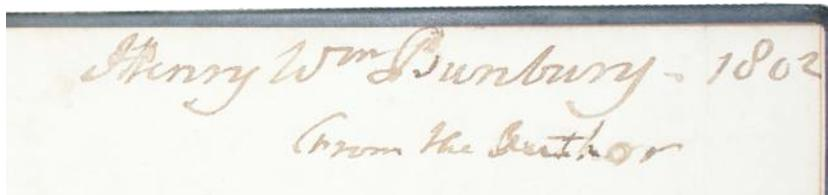 Henry Wm Bunbury - 1802
From the Author